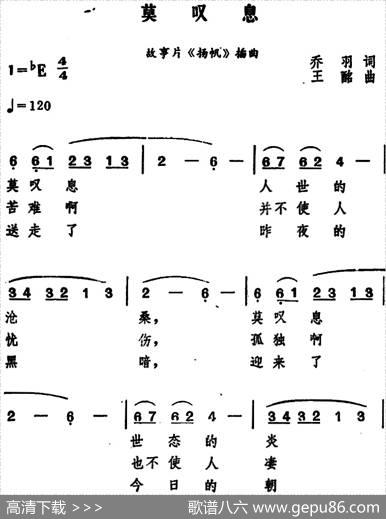 莫叹息
故事片《扬帆》插曲
1=♭E 4/4
乔 羽 词
王 酩 曲
♩=120
6 61 23 13 | 2 — 6 — | 67 62 4 — |
莫叹息 人世的
苦难啊 并不使人
送走了 昨夜的
34 32 1 3 | 2 — 6 — | 6 61 23 13 |
沧 桑， 莫叹息
忧 伤， 孤独啊
黑 暗， 迎来了
2 — 6 — | 67 62 4 — | 34 32 1 3 |
世态的 炎
也不使人 凄
今日的 朝
高清下载 >>>
歌谱八六 www.gepu86.com